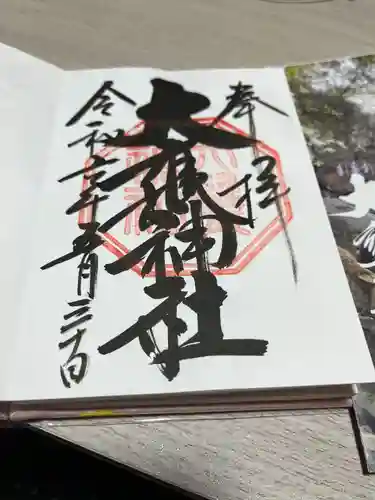 奉拝
大甕神社
令和元年五月三十日